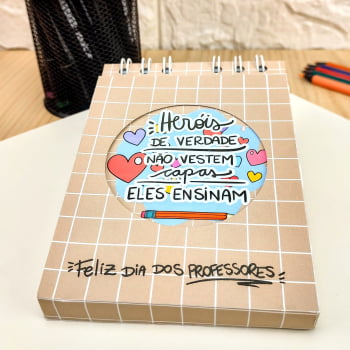 Heróis
DE VERDADE
NÃO VESTEM
capas
ELES ENSINAM
Feliz DIA DOS PROFESSORES